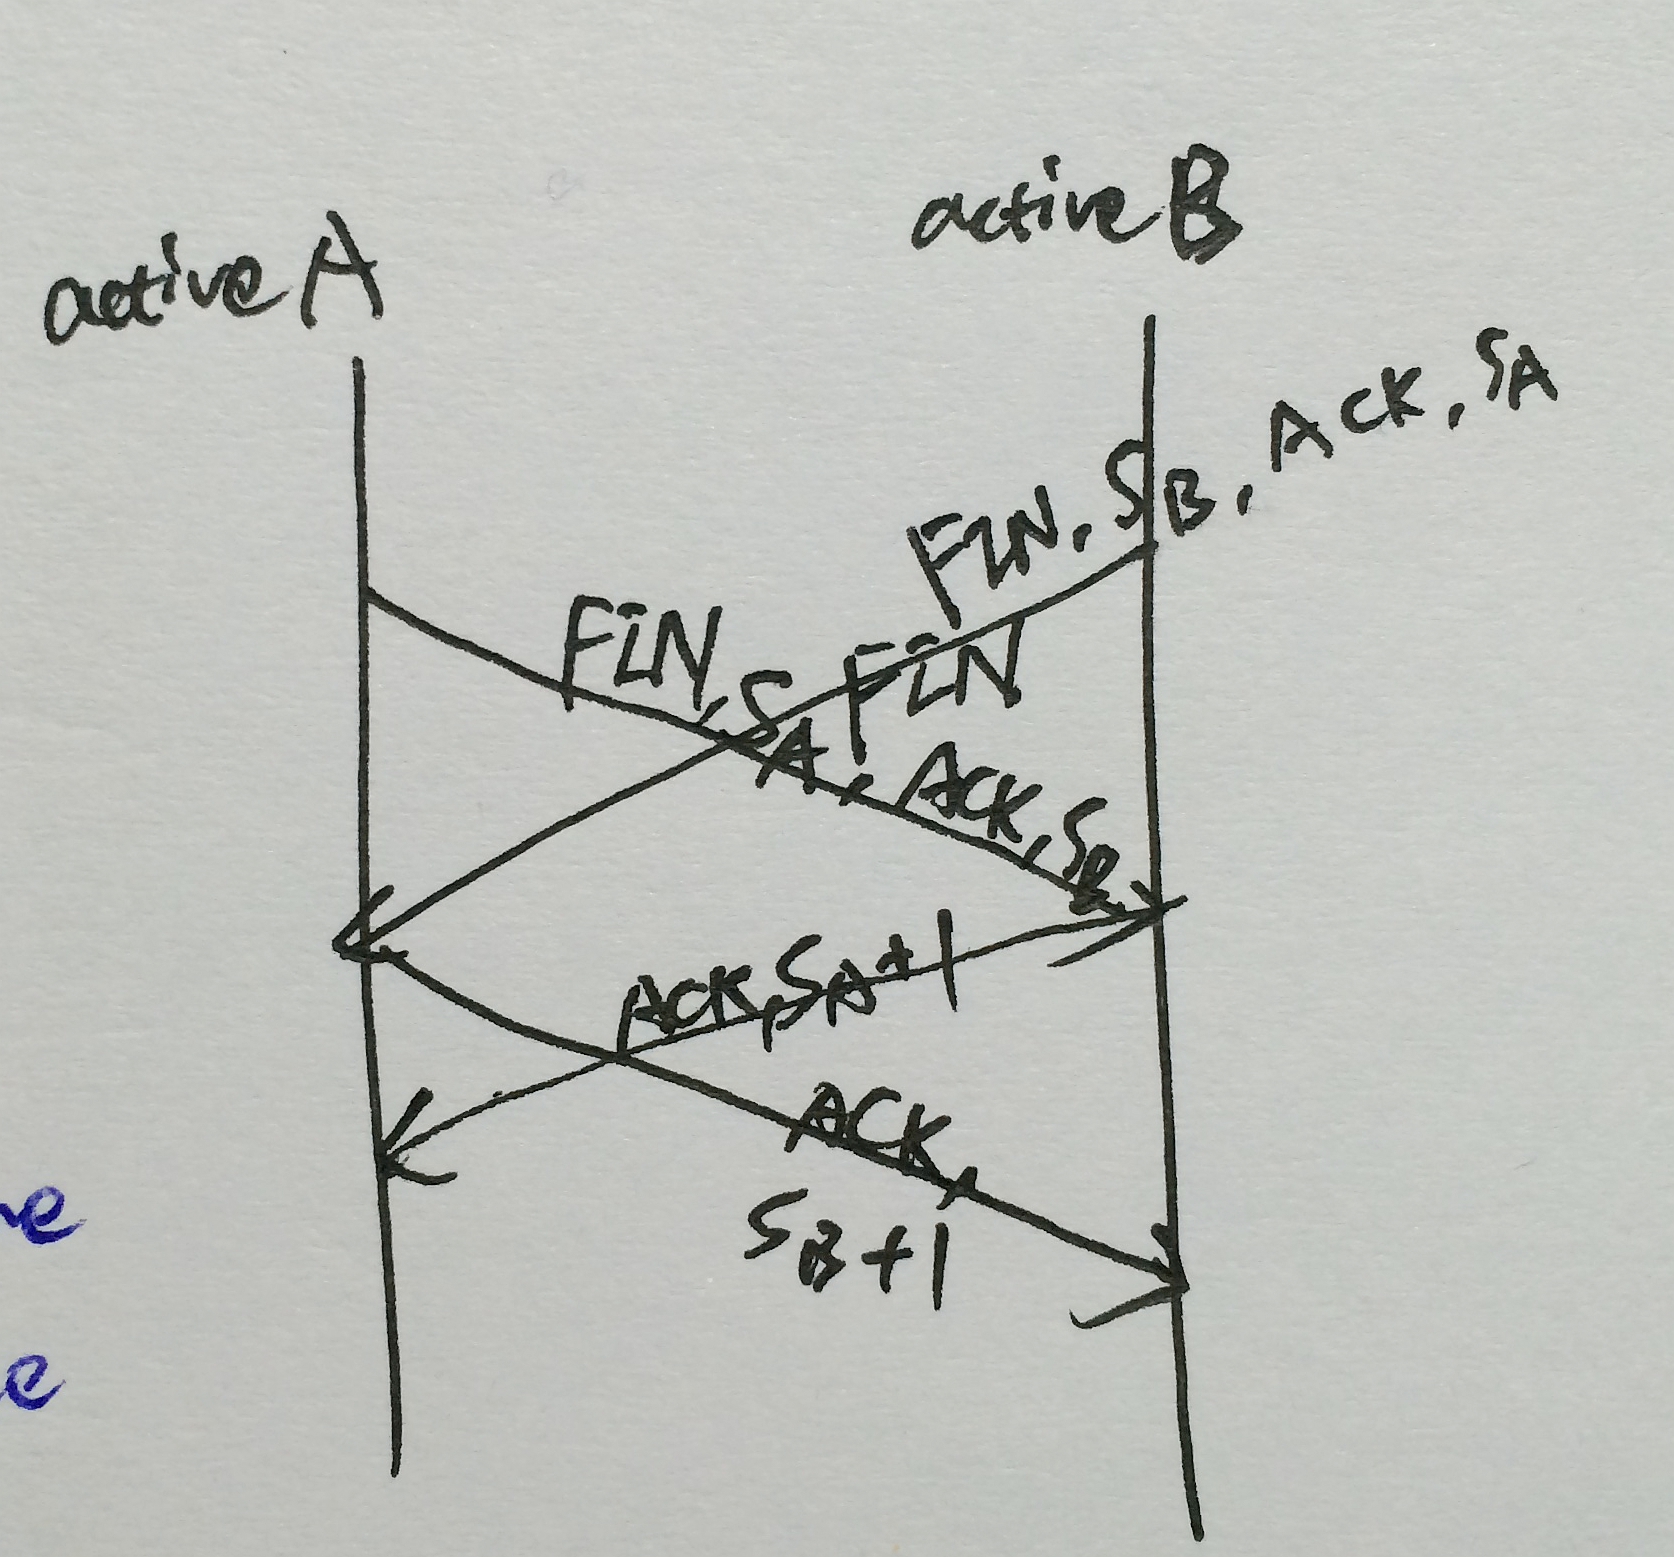 active A
active B
FIN, SB, ACK, SA
FIN, SA, ACK, SB
FIN
ACK, SA+1
ACK,
SB+1
e